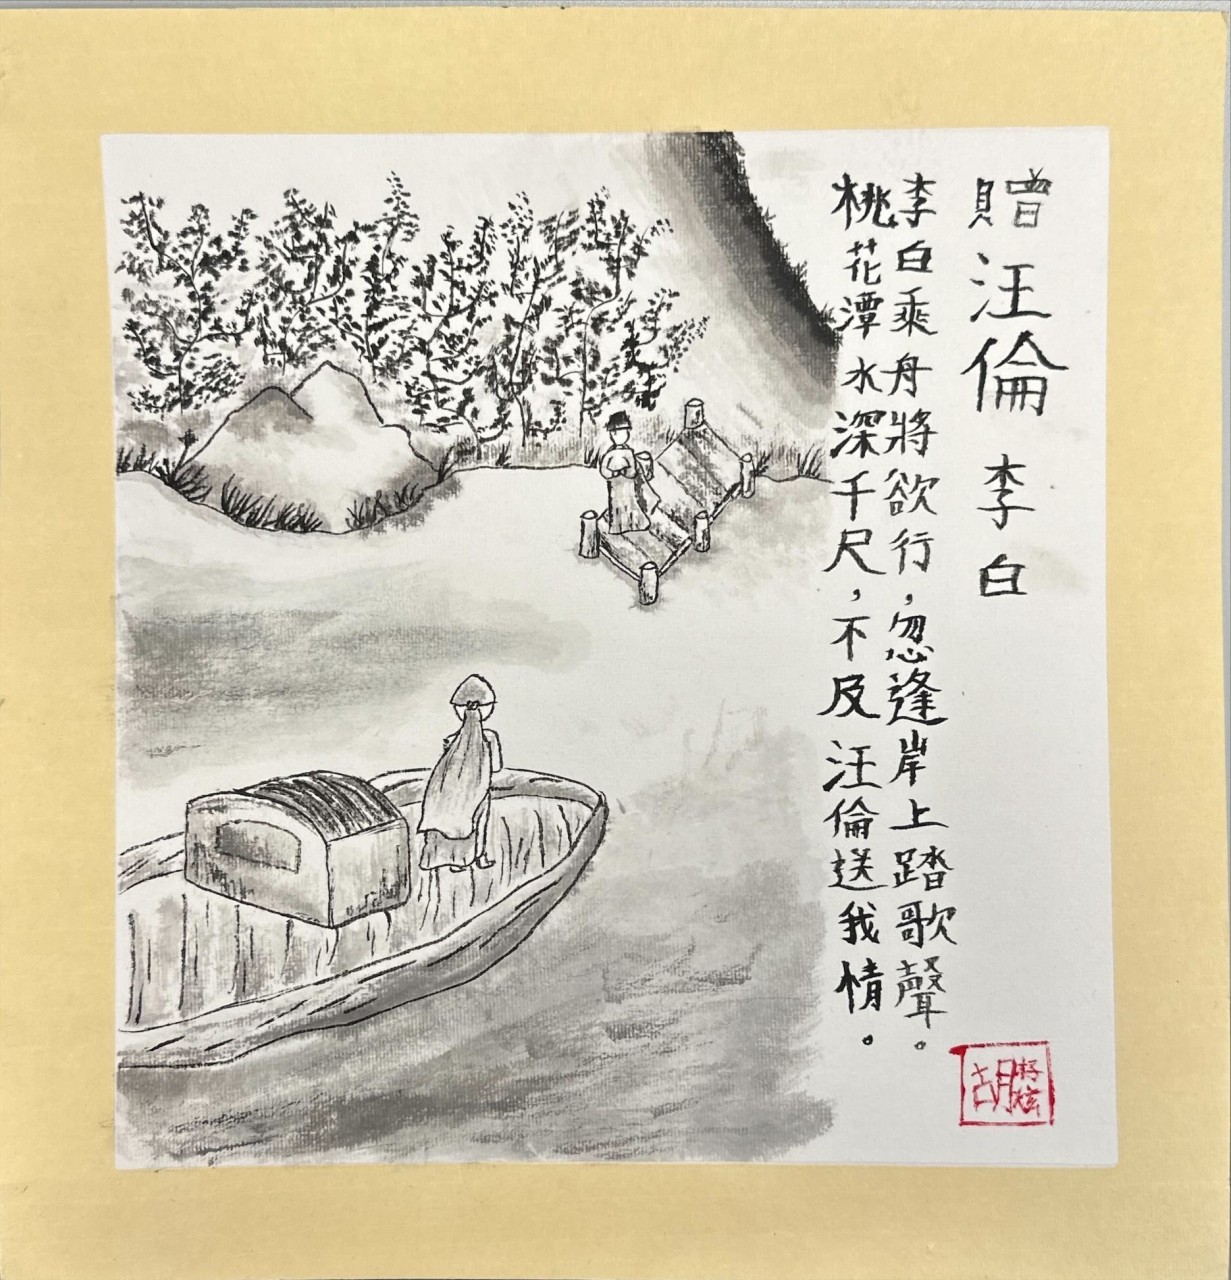 贈汪倫 李白
李白乘舟將欲行，忽逢岸上踏歌聲。
桃花潭水深千尺，不及汪倫送我情。
胡